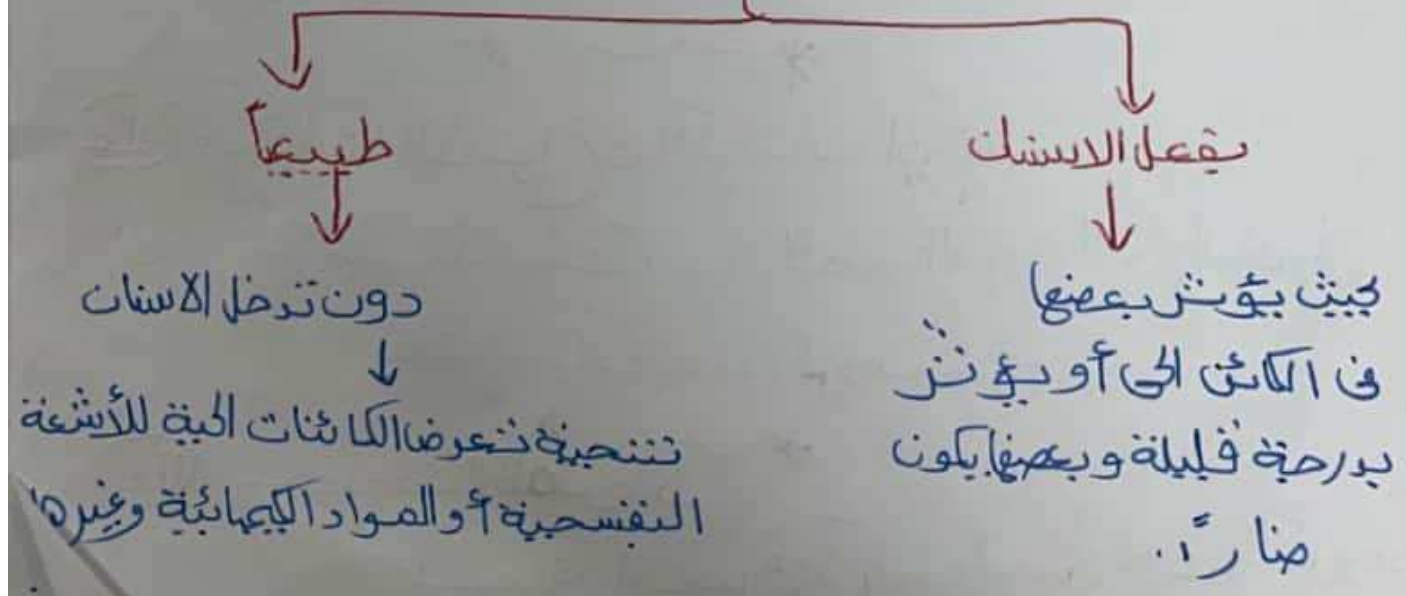 بفعل الانسان
بحيث يؤثر بعضها
في الكائن الحي أو يؤثر
بدرجة قليلة وبعضها يكون
ضاراً.
طبيعياً
دون تدخل الانسان
نتيجة تعرض الكائنات الحية للأشعة
البنفسجية أو المواد الكيميائية وغيرها